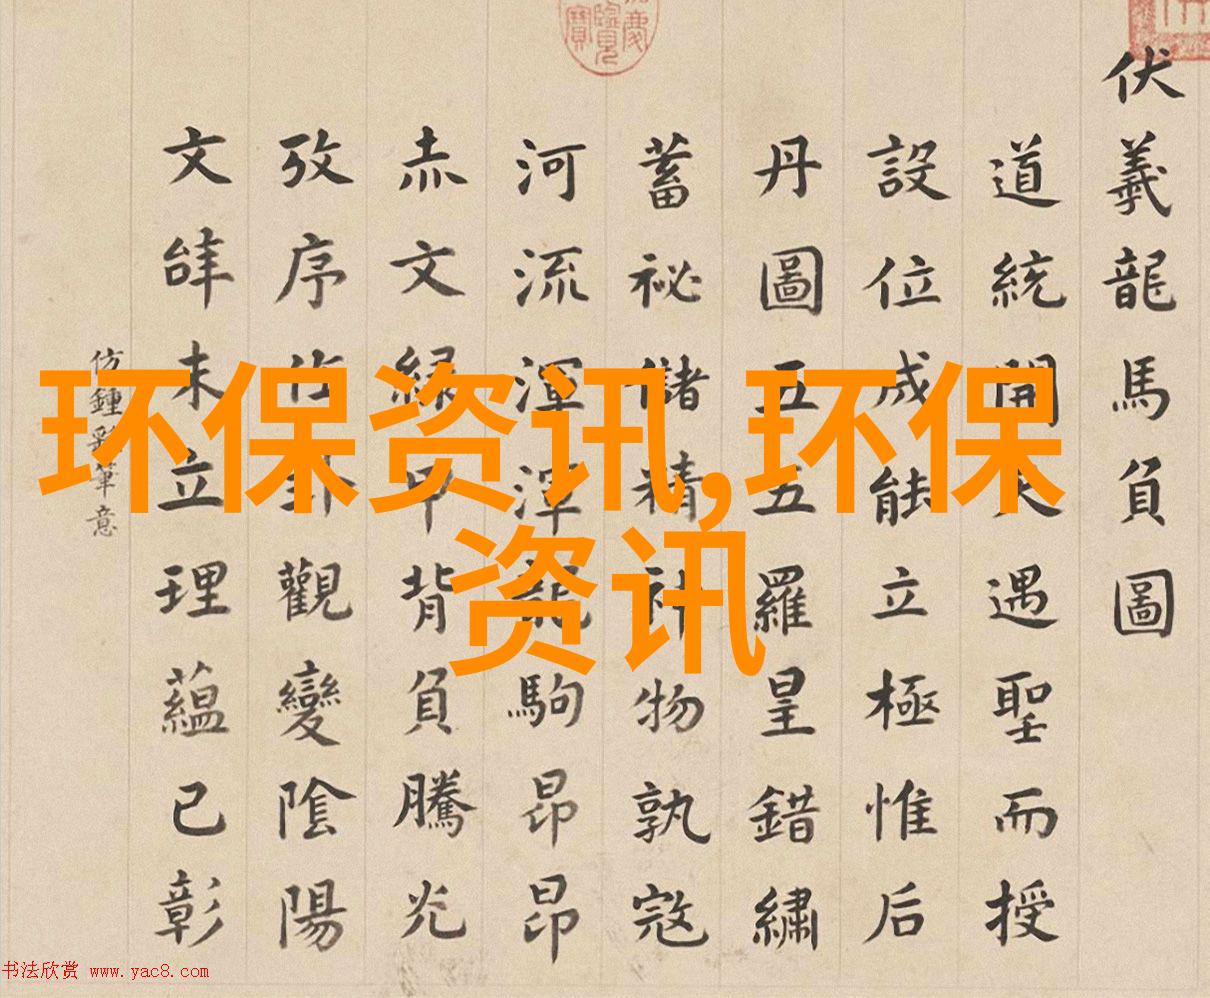 伏羲龍馬負圖
道統開天遇聖而授
設位成能立極惟后
丹圖五五羅皇錯繡
蓄祕儲精神物孰寇
河流渾渾龍駒昂昂
赤文緑甲背負騰光
攷序作卦觀變陰陽
文詳未立理蘊已彰
仿鍾繇筆意
環保资讯,环保
资讯
书法欣赏 www.yac8.com